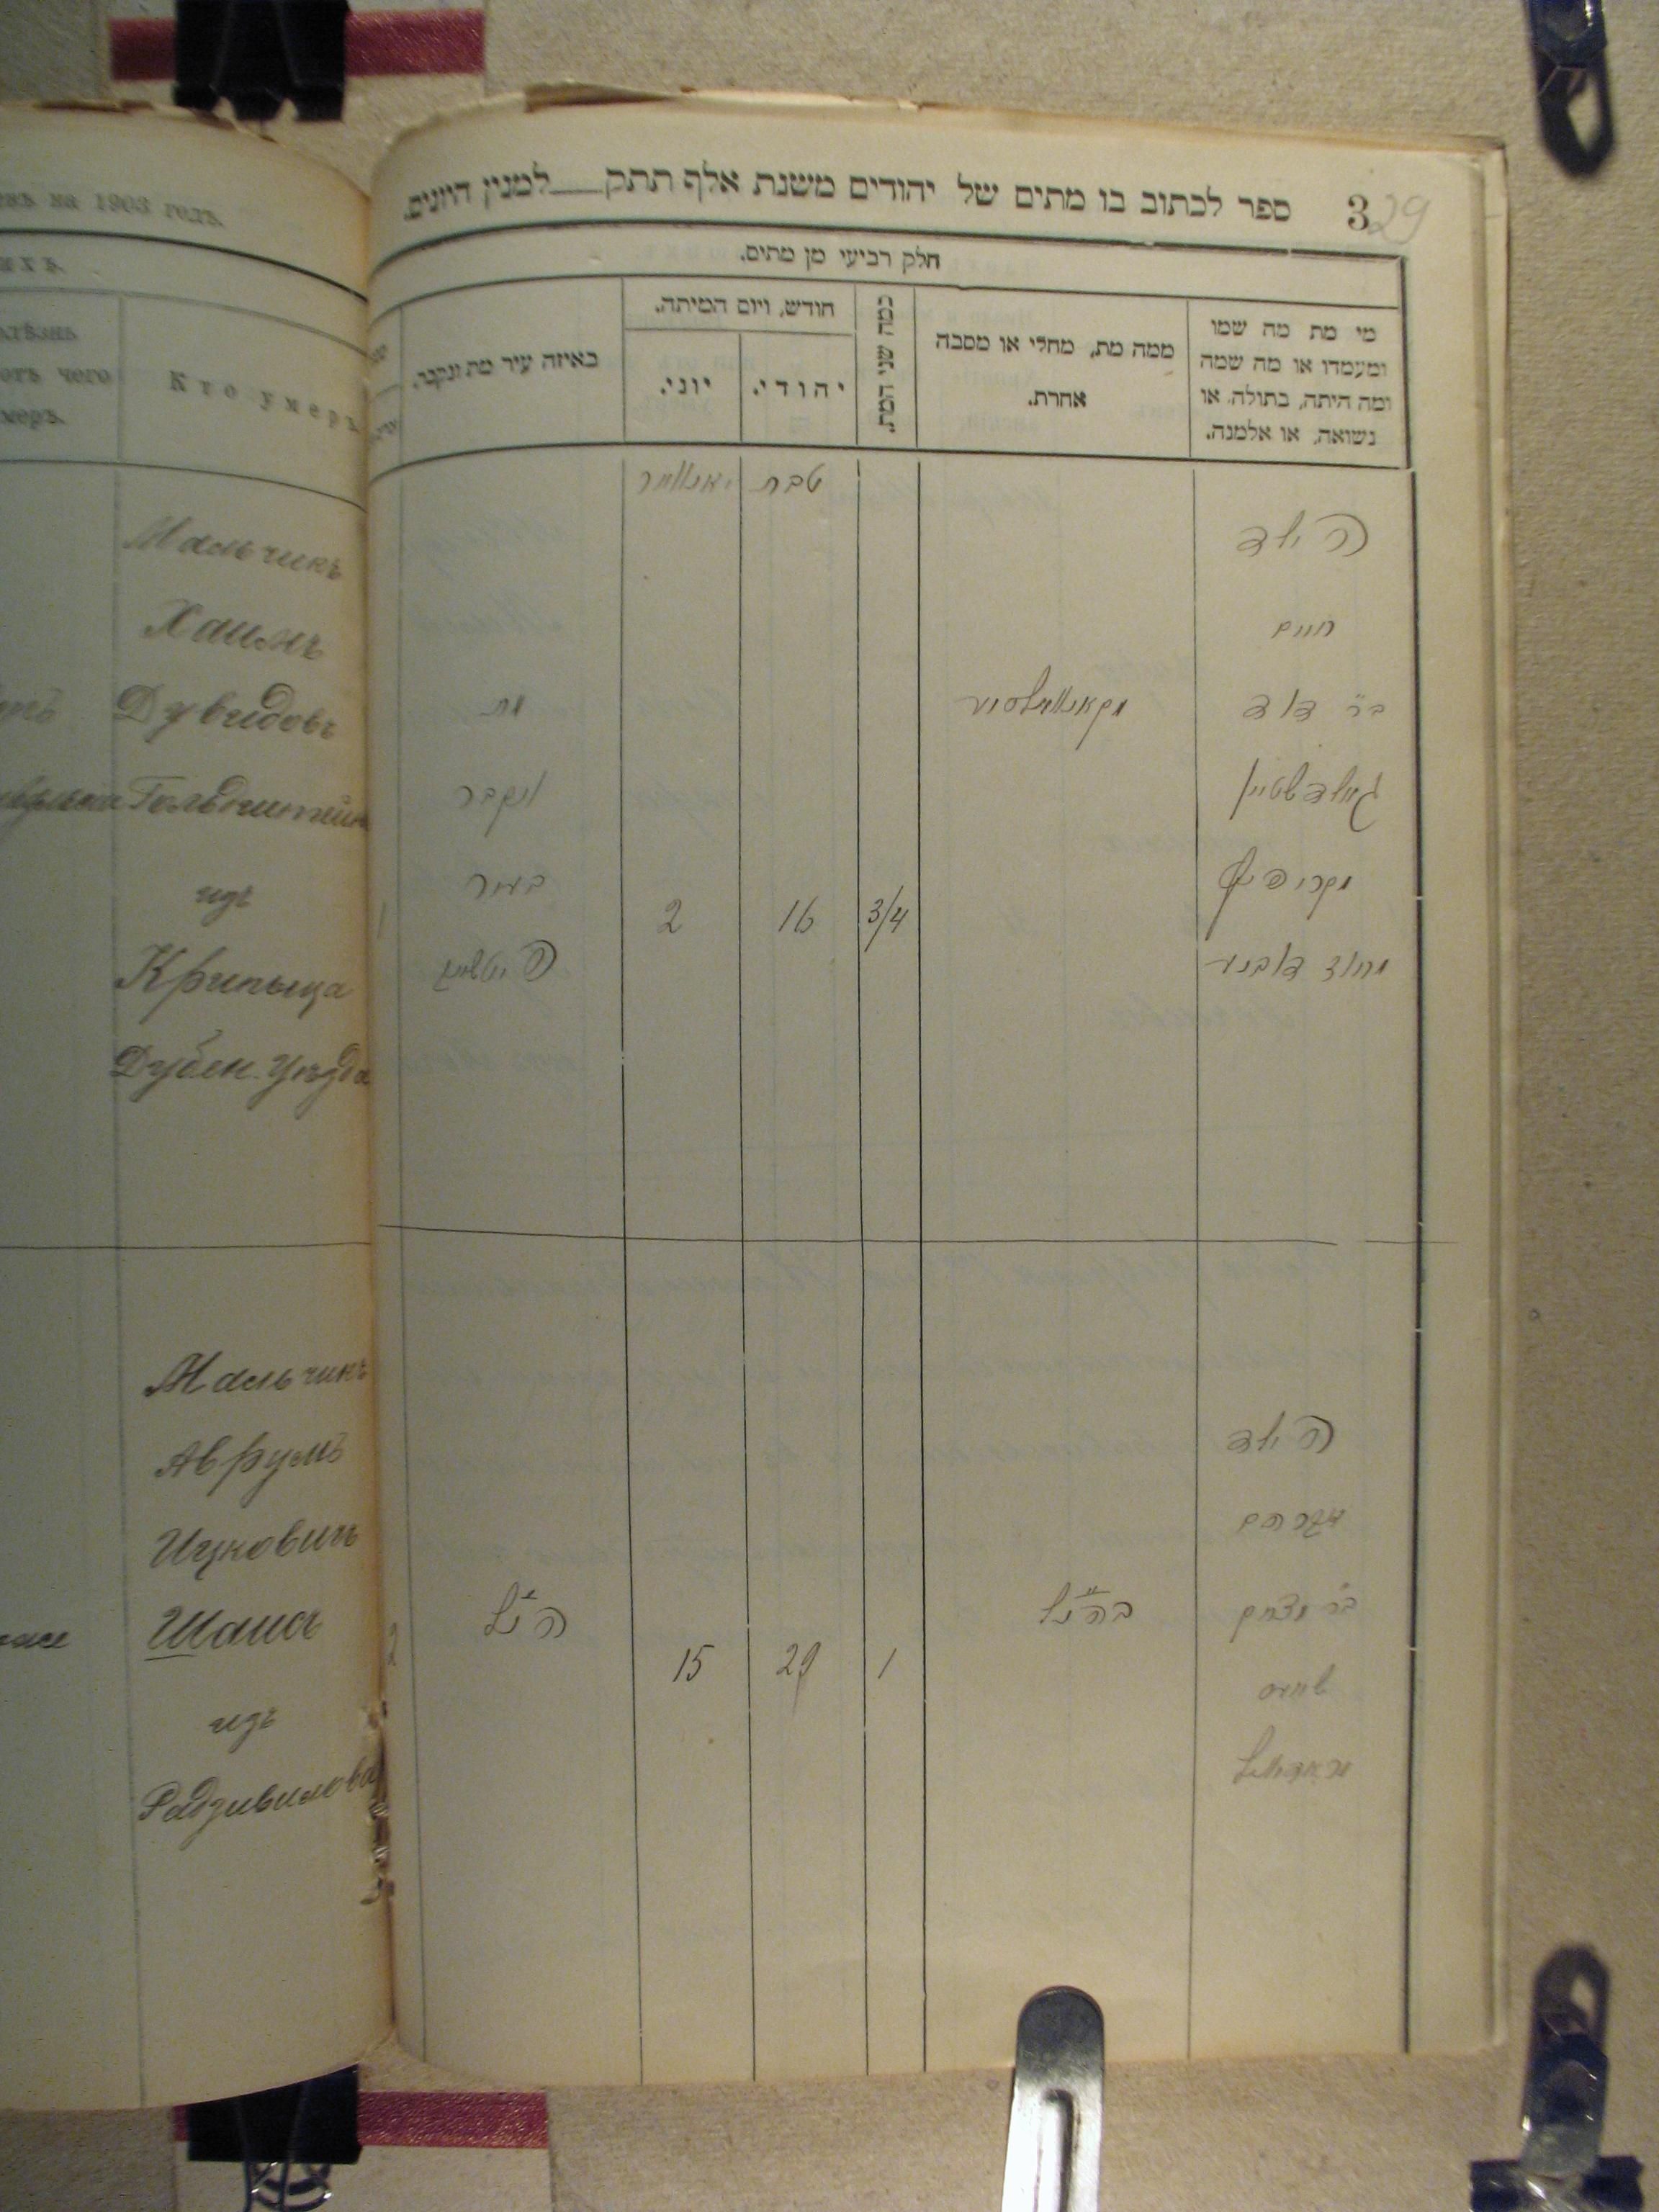 на 1903 годъ.
ихъ.
чего
Кто умеръ
Мальчикъ
Хаимъ
Дувидовъ
Гольдштейнъ
изъ
Крипыца
Дубен. Уѣзда
Мальчикъ
Аврумъ
Ицковичъ
Шаисъ
изъ
Радзивилова
3 29
ספר לכתוב בו מתים של יהודים משנת אלף תתק__למנין היונים.
חלק רביעי מן מתים.
מי מת מה שמו
ומעמדו או מה שמה
ומה היתה, בתולה, או
נשואה, או אלמנה.
ממה מת, מחלי או מסבה
אחרת.
כמה שני המת.
חודש, ויום המיתה.
יהודי.
יוני.
באיזה עיר מת ונקבר.
טבת
יאנואר
הילד
חיים
ב"ר דוד
גאלדשטיין
מחוז דובנא
3/4
16
2
מת
ונקבר
בעיר
1
הילד
אברהם
ב"ר יצחק
שייס
בהנ"ל
1
29
15
הנ"ל
2